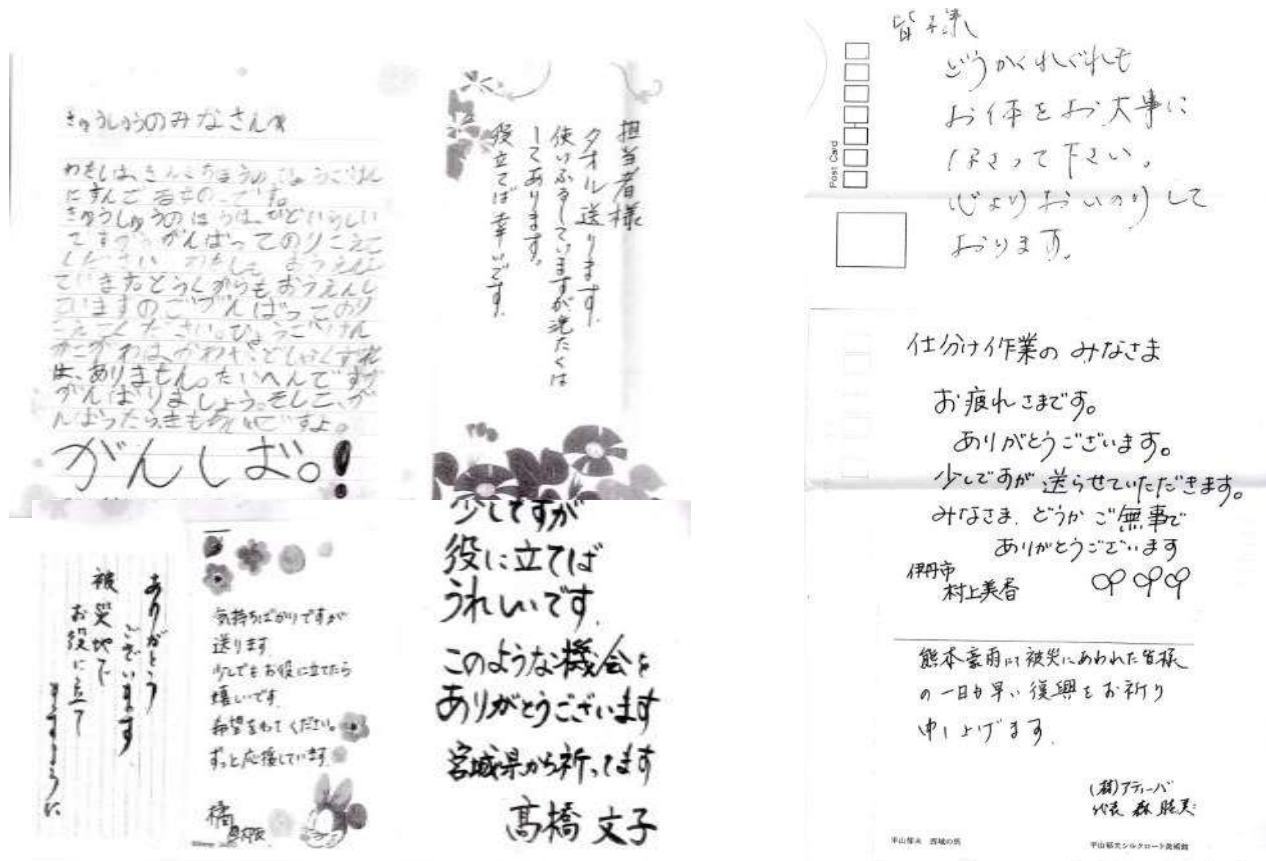 きゅうしゅうのみなさんへ
わたしは、きんきちほうの、ひょうごけん
にすんでるもの、です。
きゅうしゅうのほうは、ひどいらしい
ですが、がんばってのりこえて
ください。わたしも おうえんし
ています。とうくからもおうえんし
ていますのでがんばってのり
こえてください。ひょうごけん
かこがわは、かわが、どしゃくずれ
は、ありません。たいへんですが
がんばりましょう。そして、が
んばったらきもちいいですよ。
がんしば。!
担当者様
タオル送ります。
使いふるしていますが洗たくは
してあります。
役立てば幸いです。
ありがとう
ございます
被災地で
お役に立て
ますように
気持ちばかりですが
送ります
少しでもお役に立てたら
嬉しいです。
希望をもってください。
ずっと応援しています。
橘
少しですが
役に立てば
うれしいです。
このような機会を
ありがとうございます
宮城県から祈ってます
髙橋 文子
皆様
どうかくれぐれも
お体をお大事に
なさって下さい。
心よりおいのりして
おります。
Post Card
仕分け作業の みなさま
お疲れさまです。
ありがとうございます。
少しですが 送らせていただきます。
みなさま、どうかご無事で
ありがとうございます
伊丹市
村上美香
熊本豪雨にて被災にあわれた皆様
の一日も早い復興をお祈り
申し上げます。
(株)アティーバ
代表 森
平山郁夫 西域の馬
平山郁夫シルクロード美術館